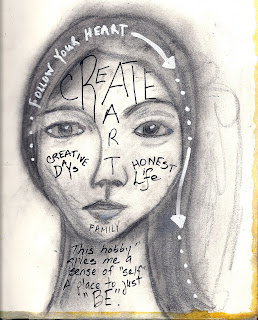 FOLLOW YOUR HEART
CREATE
A
R
T
CREATIVE
DAYs
HONEST
Life
FAMILY
This hobby
gives me a
sense of "self"
A place to just
"BE."